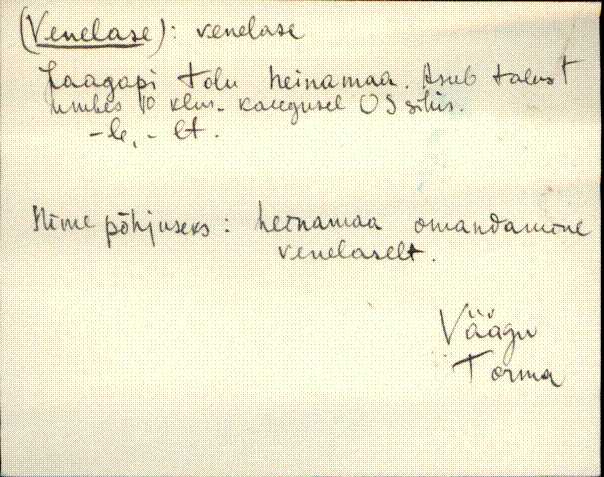 (Venelase): venelase
Laagapi talu heinamaa. Asub talust
umbes 10 klm. kaugusel OS sihis.
-le, -lt.
Nime põhjuseks: heinamaa omandamine
venelaselt.
Väägu
Torma